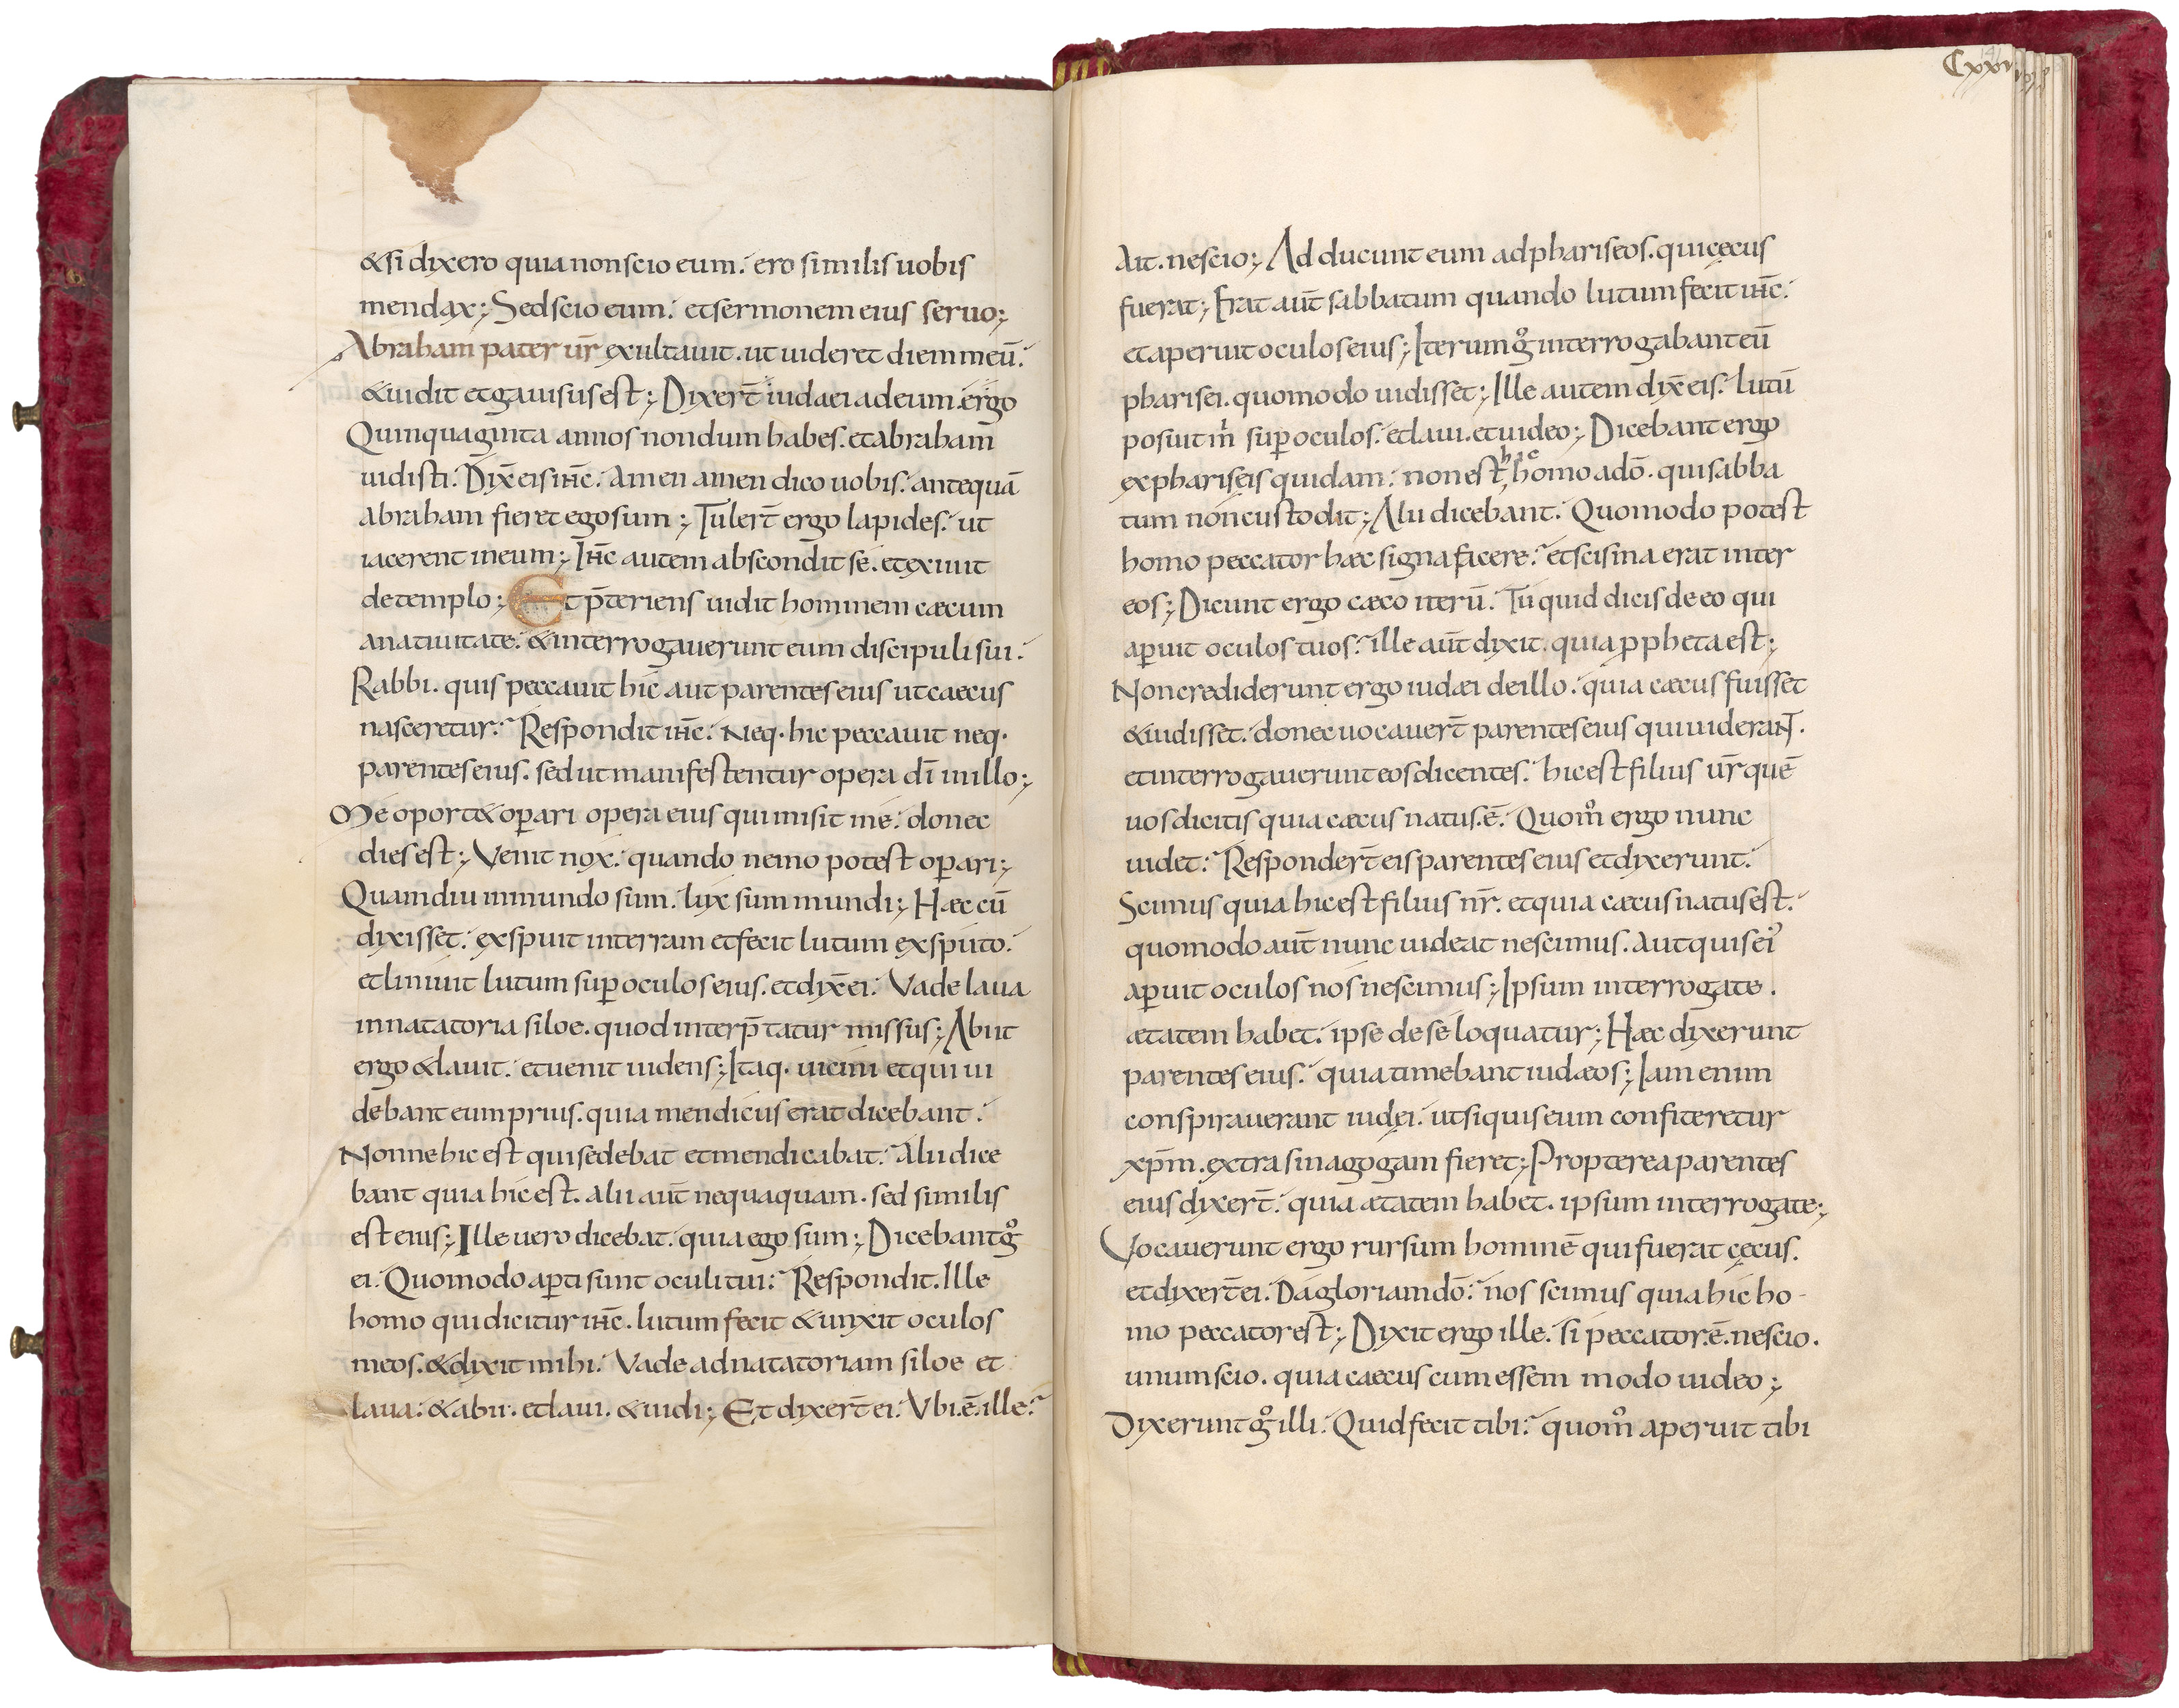 &si dixero quia non scio eum. ero similis uobis
mendax; Sed scio eum. et sermonem eius seruo;
Abraham pater ur̄ exultauit. ut uideret diem meū.
&uidit et gauisus est; Dixer̄t iudaei ad eum. ergo
Quinquaginta annos nondum habes. et abraham
uidisti. Dix̄ eis ihc̄. Amen amen dico uobis. antequā
abraham fieret ego sum; Tuler̄t ergo lapides. ut
iacerent in eum; Ihc̄ autem abscondit se. et exiuit
de templo; Et p̄teriens uidit hominem cæcum
a natiuitate. &interrogauerunt eum discipuli sui.
Rabbi. quis peccauit hic aut parentes eius ut caecus
nasceretur. Respondit ihc̄. Neq. hic peccauit neq.
parentes eius. sed ut manifestentur opera dī in illo;
Me oport& op̄ari opera eius qui misit me. donec
dies est; Venit nox. quando nemo potest op̄ari;
Quamdiu in mundo sum. lux sum mundi; Hæc cū
dixisset. exspuit in terram et fecit lutum ex sputo.
et liniuit lutum sup̄ oculos eius. et dix̄ ei. Vade laua
in natatoria siloe. quod interp̄tatur missus; Abiit
ergo &lauit. et uenit uidens; Itaq. uicini et qui ui
debant eum prius. quia mendicus erat dicebant.
Nonne hic est qui sedebat et mendicabat. Alii dice
bant quia hic est. alii aut̄ nequaquam. sed similis
est eius; Ille uero dicebat. quia ego sum; Dicebant gͦ
ei. Quomodo ap̄ti sunt oculi tui. Respondit. Ille
homo qui dicitur ihc̄. lutum fecit &unxit oculos
meos. &dixit mihi. Vade ad natatoriam siloe et
laua. &abii. et laui. &uidi; Et dixer̄t ei. Vbi.ē.ille.
Cxxi
141
Ait. nescio; Adducunt eum ad phariseos. qui cęcus
fuerat; Erat aut̄ sabbatum quando lutum fecit ihc̄.
et aperuit oculos eius; Iterum gͦ interrogabant eū
pharisei. quomodo uidisset; Ille autem dix̄ eis. lutū
posuit m̍ sup̄ oculos. et laui. et uideo; Dicebant ergo
ex phariseis quidam. non est hic homo a dō. qui sabba
tum non custodit; Alii dicebant. Quomodo potest
homo peccator hæc signa facere. et scisma erat inter
eos; Dicunt ergo cæco iterū. Tu quid dicis de eo qui
ap̄uit oculos tuos. ille aut̄ dixit. quia ꝓpheta est;
Non crediderunt ergo iudæi de illo. quia cæcus fuisset
&uidisset. donec uocauer̄t parentes eius qui uiderant.
et interrogauerunt eos dicentes. hic est filius ur̄ quē
uos dicitis quia cæcus natus.ē. Quom̊ ergo nunc
uidet. Responder̄t eis parentes eius et dixerunt.
Scimus quia hic est filius nr̄. et quia cæcus natus est.
quomodo aut̄ nunc uideat nescimus. aut quis ei'
ap̄uit oculos nos nescimus; Ipsum interrogate.
ætatem habet. ipse de se loquatur; Hæc dixerunt
parentes eius. quia timebant iudæos; Iam enim
conspirauerant iudęi. ut si quis eum confiteretur
xp̄m. extra sinagogam fieret; Propterea parentes
eius dixer̄t. quia ætatem habet. ipsum interrogate;
Vocauerunt ergo rursum hominē qui fuerat cęcus.
et dixer̄t ei. Da gloriam dō. nos scimus quia hic ho-
mo peccator est; Dixit ergo ille. si peccator.ē. nescio.
unum scio. quia caecus cum essem modo uideo;
Dixerunt gͦ illi. Quid fecit tibi. quom̊ aperuit tibi